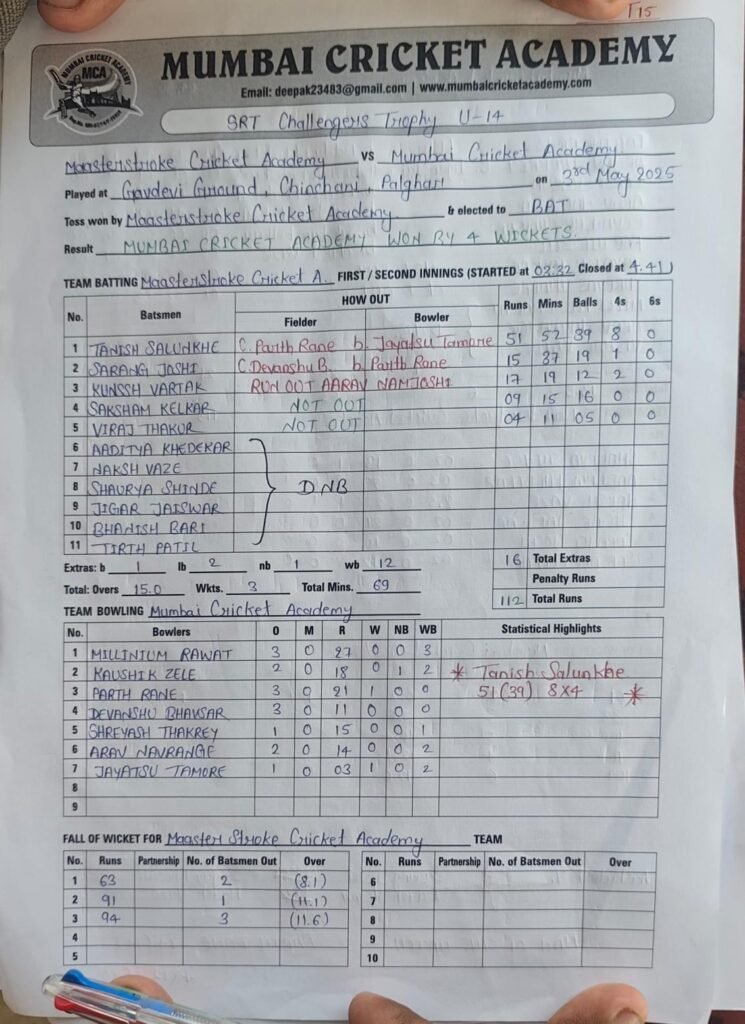 T15
MUMBAI CRICKET ACADEMY
MUMBAI CRICKET ACADEMY
MCA
Email: deepak23483@gmail.com | www.mumbaicricketacademy.com
SRT Challengers Trophy U-14
Maasterstroke Cricket Academy vs Mumbai Cricket Academy
Played at Gavdevi Ground, Chinchani, Palghar on 3rd May 2025
Toss won by Maasterstroke Cricket Academy & elected to BAT
Result MUMBAI CRICKET ACADEMY WON BY 4 WICKETS.
TEAM BATTING MaasterStroke Cricket A. FIRST / SECOND INNINGS (STARTED at 03:32 Closed at 4.41)
No. Batsmen HOW OUT Runs Mins Balls 4s 6s
Fielder Bowler
1 TANISH SALUNKHE C. Parth Rane b. Jayatsu Tamore 51 52 39 8 0
2 SARANG JOSHI C. Devanshu B. b. Parth Rane 15 37 19 1 0
3 KUNSSH VARTAK RUN OUT AARAV NAMJOSHI 17 19 12 2 0
4 SAKSHAM KELKAR NOT OUT 09 15 16 0 0
5 VIRAJ THAKUR NOT OUT 04 11 05 0 0
6 AADITYA KHEDEKAR
7 NAKSH VAZE
8 SHAURYA SHINDE DNB
9 JIGAR JAISWAR
10 BHANISH BARI
11 TIRTH PATIL
Extras: b 1 lb 2 nb 1 wb 12 16 Total Extras
Penalty Runs
Total: Overs 15.0 Wkts. 3 Total Mins. 69 112 Total Runs
TEAM BOWLING Mumbai Cricket Academy
No. Bowlers O M R W NB WB Statistical Highlights
1 MILLINIUM RAWAT 3 0 27 0 0 3
2 KAUSHIK ZELE 2 0 18 0 1 2 * Tanish Salunkhe
3 PARTH RANE 3 0 21 1 0 0 51(39) 8x4 *
4 DEVANSHU BHAVSAR 3 0 11 0 0 0
5 SHREYASH THAKREY 1 0 15 0 0 1
6 ARAV NAVRANGE 2 0 14 0 0 2
7 JAYATSU TAMORE 1 0 03 1 0 2
8
9
FALL OF WICKET FOR Maaster Stroke Cricket Academy TEAM
No. Runs Partnership No. of Batsmen Out Over No. Runs Partnership No. of Batsmen Out Over
1 63 2 (8.1) 6
2 91 1 (11.1) 7
3 94 3 (11.6) 8
4 9
5 10